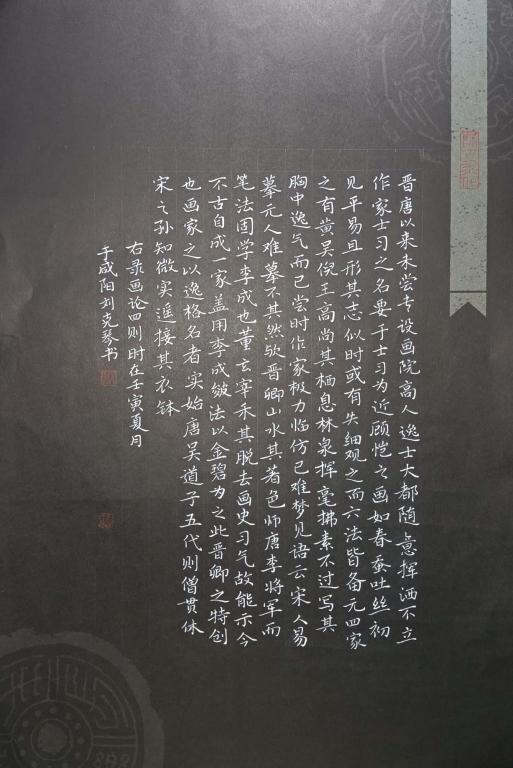 晋唐以来未尝专设画院高人逸士大都随意挥洒不立
作家士习之名要于士习为近顾恺之画如春蚕吐丝初
见平易且形其忘似时或有失细观之而六法皆备元四家
之有黄吴倪王高尚其栖息林泉挥毫拂素不过写其
胸中逸气而已尝时作家极力临仿已难梦见语云宋人易
摹元人难摹不其然欤晋卿山水其著色师唐李将军而
笔法固学李成也董玄宰禾其脱去画史习气故能示今
不古自成一家盖用李成皴法以金碧为之此晋卿之特创
也画家之以逸格名者实始唐吴道子五代则僧贯休
宋之孙知微实遥接其衣钵
右录画论四则时在壬寅夏月
于咸阳刘克琴书